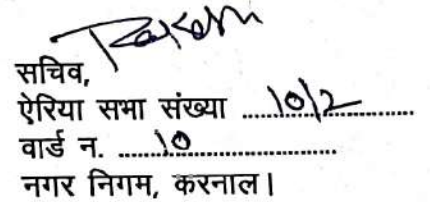 सचिव,
ऐरिया सभा संख्या ....10/2....
वार्ड न. ....10....
नगर निगम, करनाल।